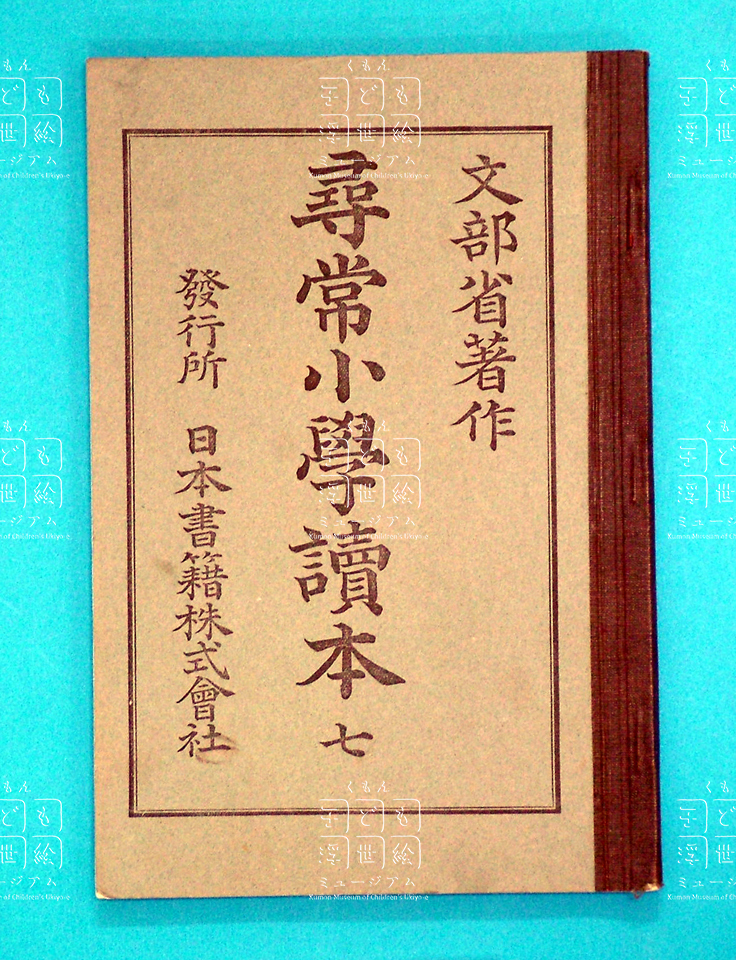 文部省著作
尋常小學讀本 七
發行所 日本書籍株式會社
くもん
子ども
浮世絵
ミュージアム
Kumon Museum of Children's Ukiyo-e